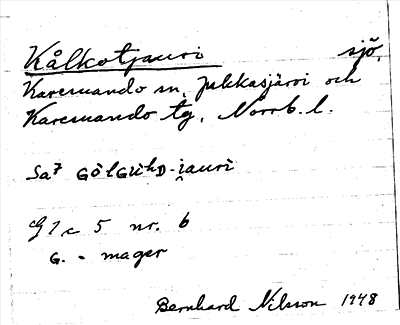 Kålkotjauri sjö,
Karesuando sn, Jukkasjärvi och
Karesuando tg, Norrb. l.
Sa7 GÒLGUHD-i̭auri
G7c 5 nr. 6
G. = mager
Bernhard Nilsson 1948